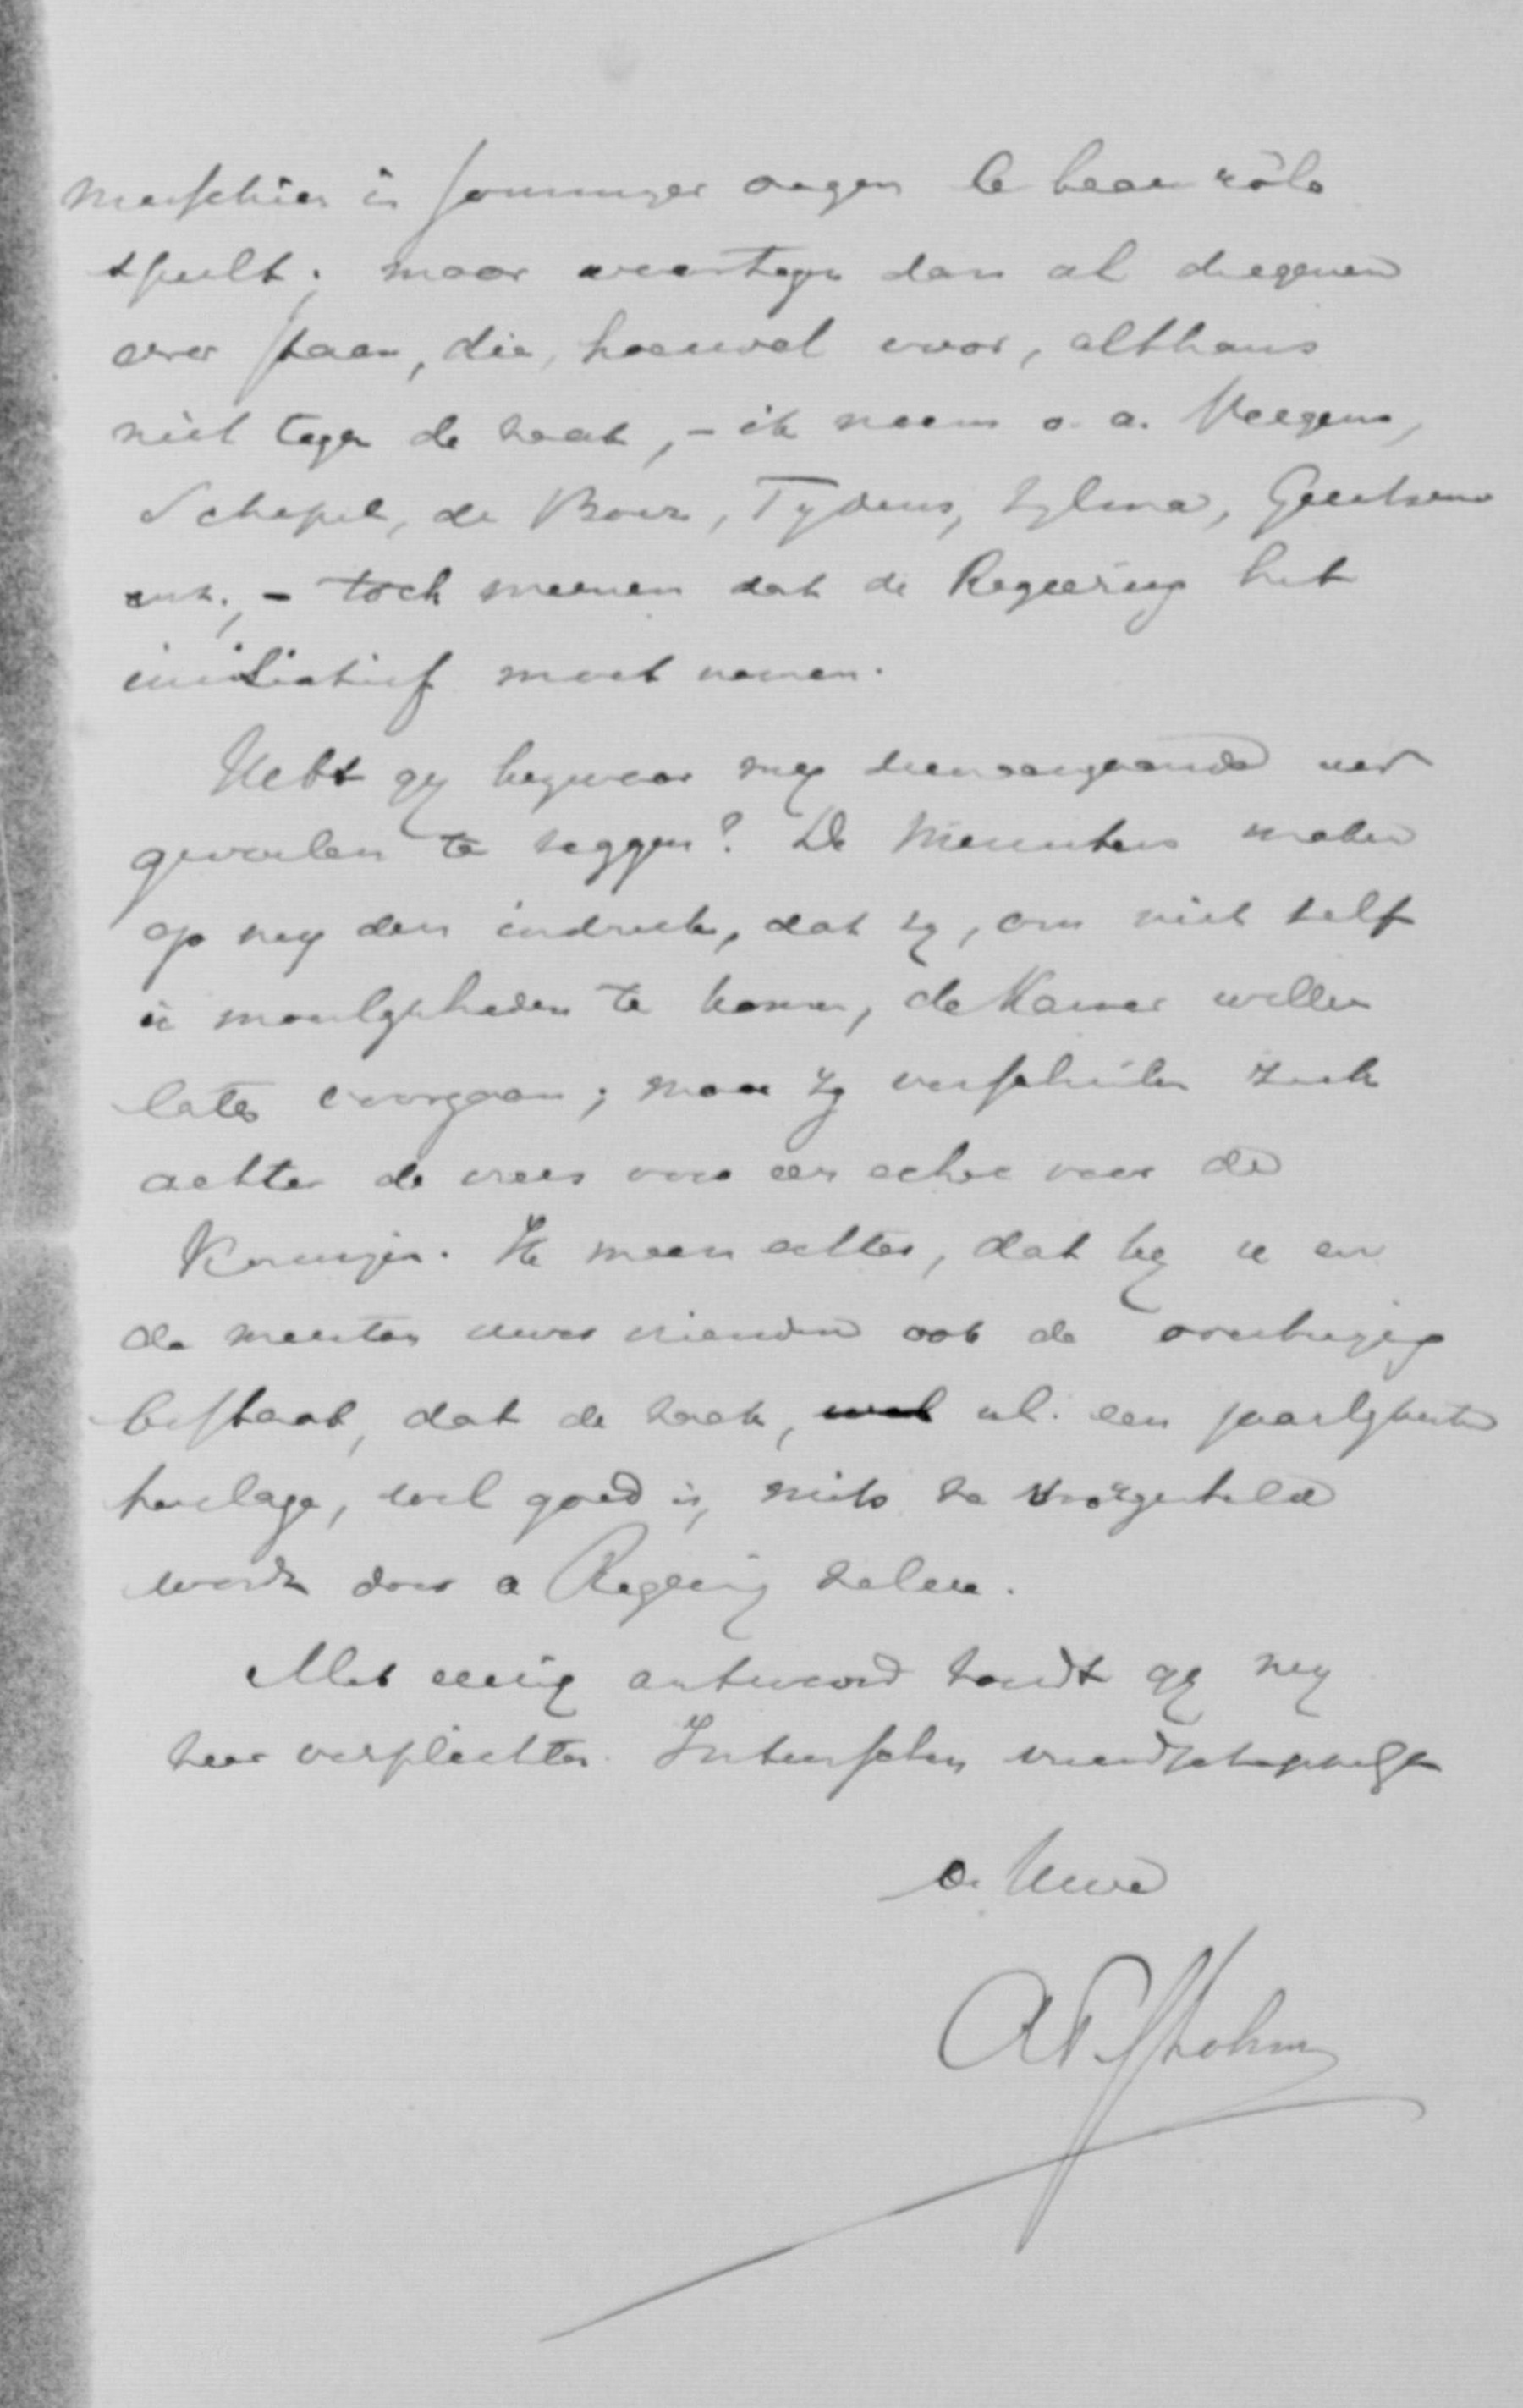 misschien in sommiger oogen le beau rôle
speelt; maar waartegen dan al diegenen
over staan, die, hoewel voor, althans
niet tegen de zaak, - ik noem o. a. Veegens,
Schepel, de Boer, Tydens, Zylma, Geertsema
enz., - toch meenen dat de Regeering het
initiatief moet nemen.
Hebt gy bezwaar my dienaangaande uw
gevoelen te zeggen? De Ministers maken
op my den indruk, dat zy, om niet zelf
in moeilykheden te komen, de Kamer willen
laten voorgaan; maar zy verschuilen zich
achter de vrees voor een echec voor de
Koningin. Ik meen echter, dat by u en
de meesten uwer vrienden ook de overtuiging
bestaat, dat de zaak, nl. een jaarlyksche
toelage, wel goed is, mits ze voorgesteld
worde door de Regeering zelve.
Met eenig antwoord zoudt gy my
zeer verplichten. Intusschen vriendschappelyk
de Uwe
AFSLohman